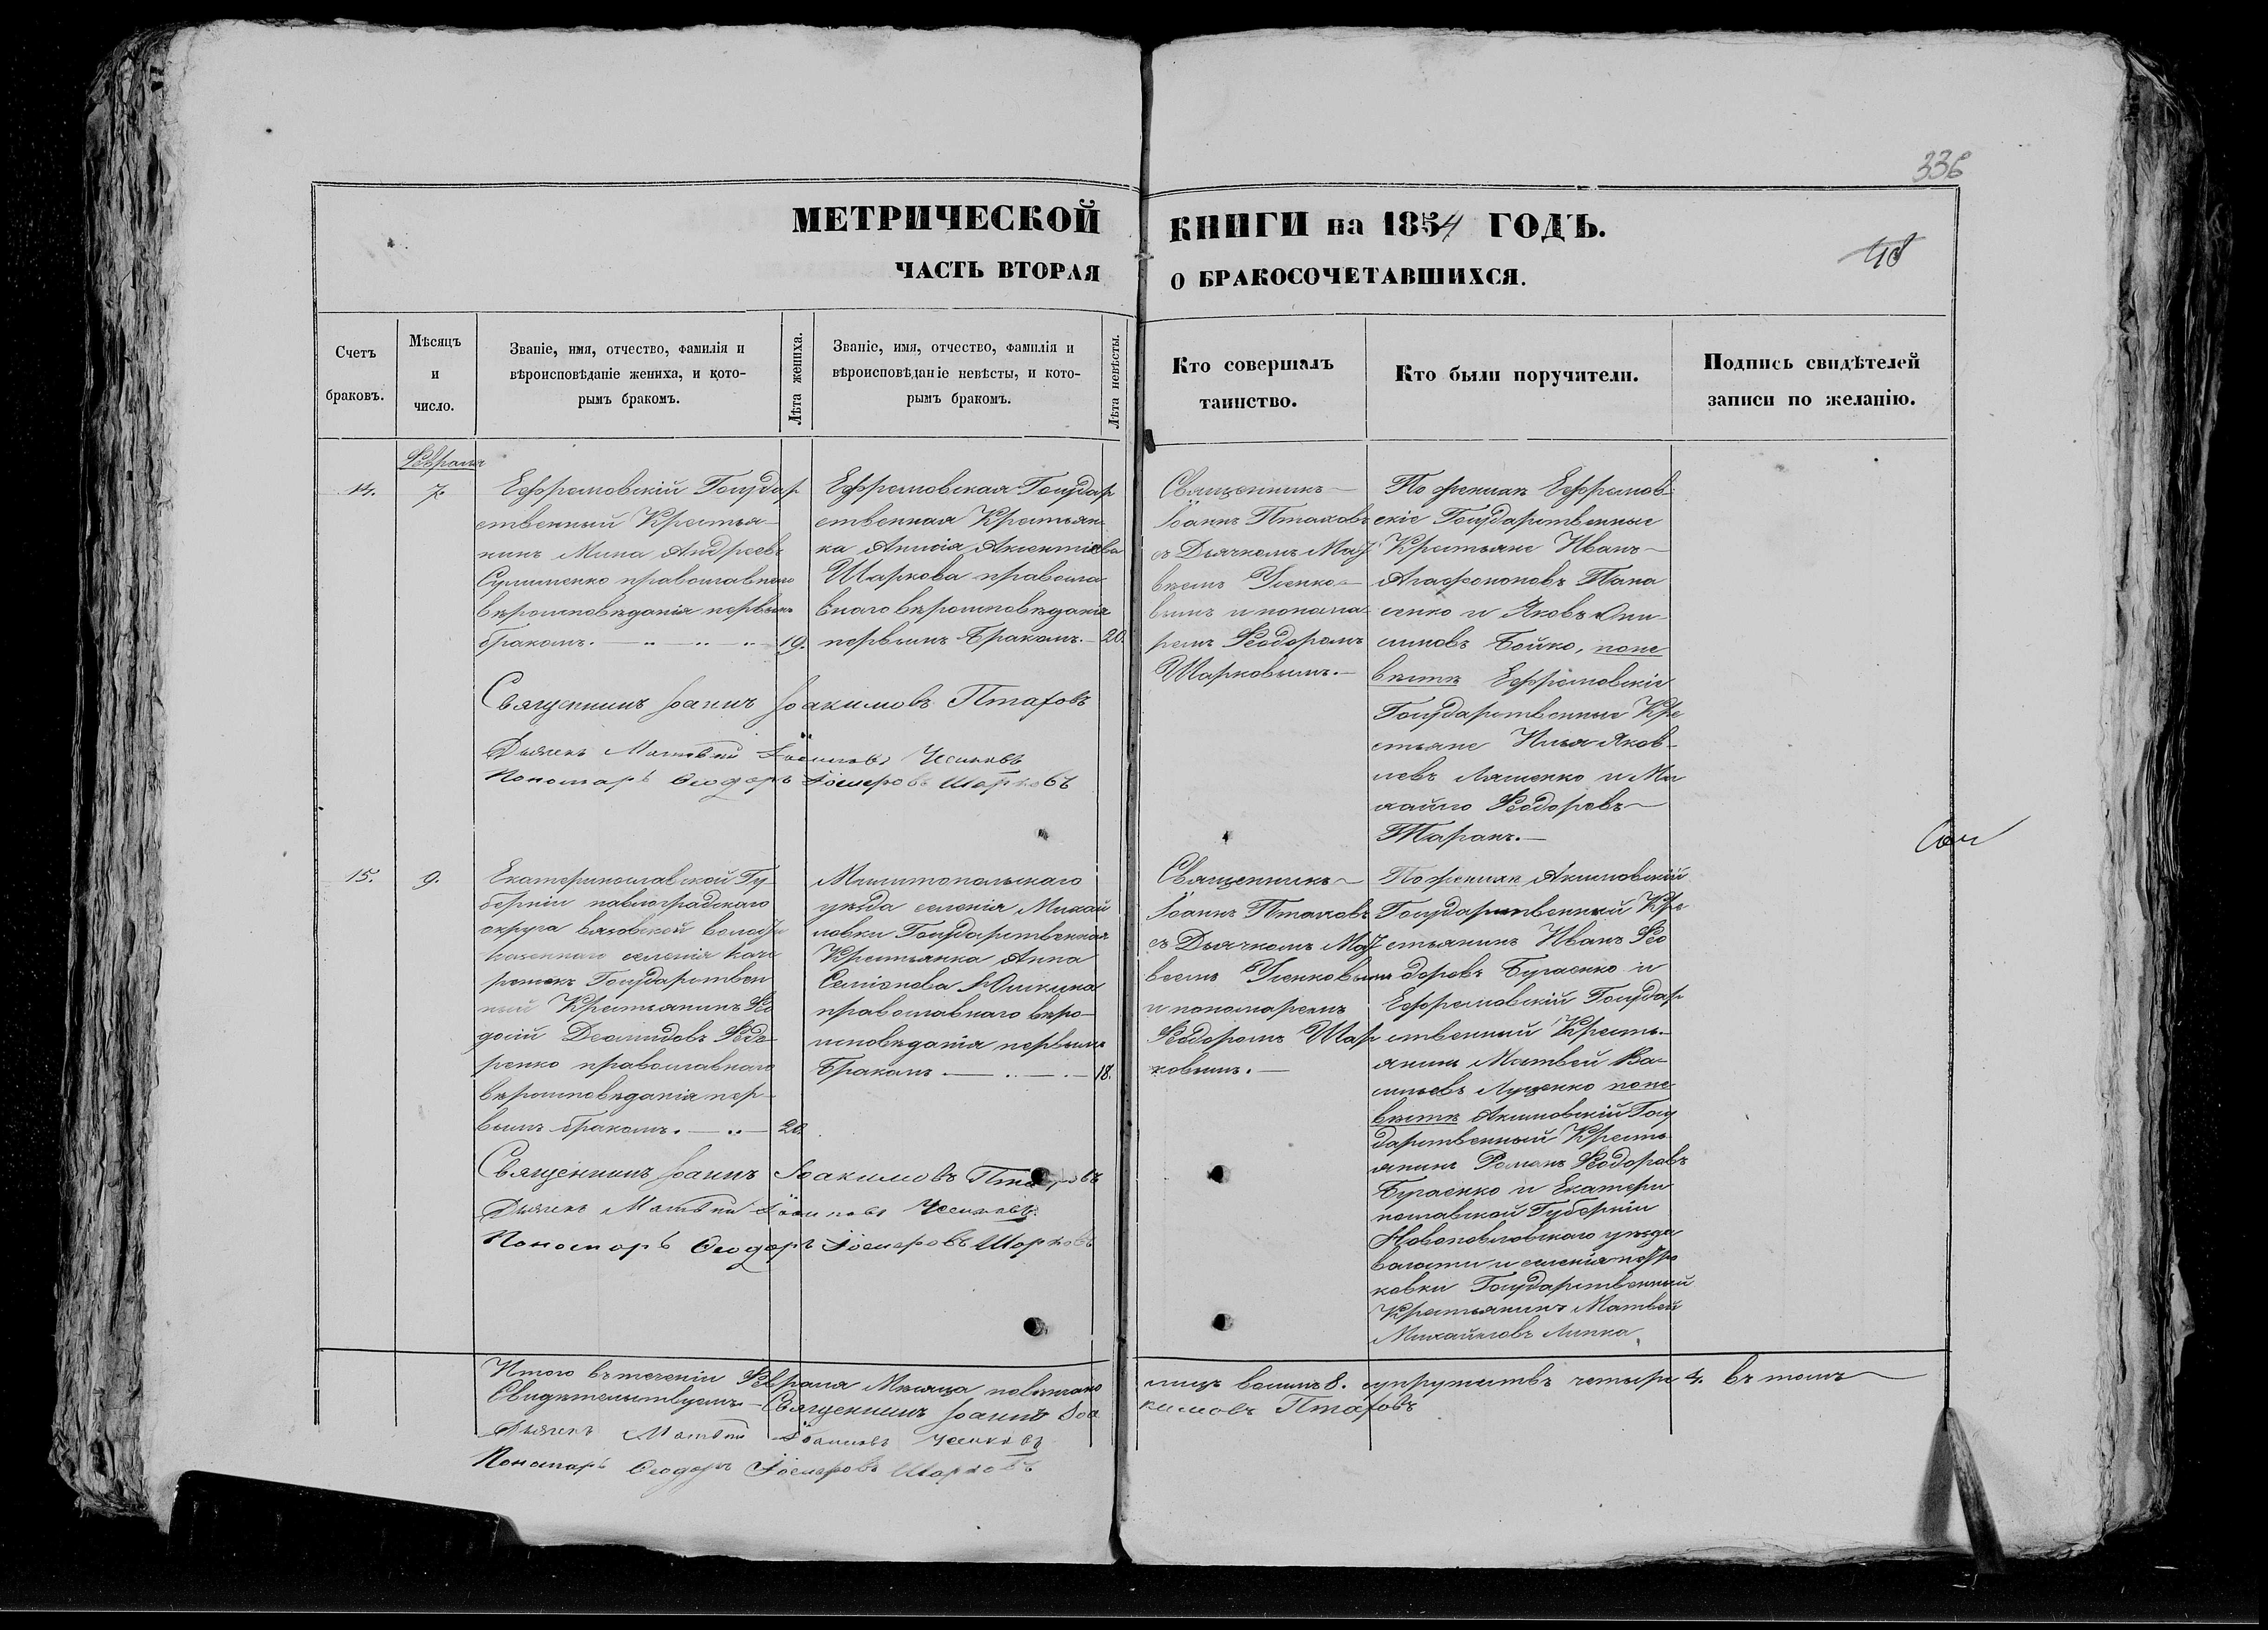 336
МЕТРИЧЕСКОЙ КНИГИ на 1854 ГОДЪ.
ЧАСТЬ ВТОРАЯ О БРАКОСОЧЕТАВШИХСЯ.
Счетъ браковъ.
Мѣсяцъ и число.
Званіе, имя, отчество, фамилія и
вѣроисповѣданіе жениха, и кото-
рымъ бракомъ.
Лѣта жениха.
Званіе, имя, отчество, фамилія и
вѣроисповѣданіе невѣсты, и кото-
рымъ бракомъ.
Лѣта невѣсты.
Кто совершалъ
таинство.
Кто были поручители.
Подпись свидѣтелей
записи по желанію.
Февраля
14.
7.
Ефремовскій Государ
ственный Крестья-
нинъ Мина Андреевъ
православнаго
вѣроисповѣданія первымъ
бракомъ.
19.
Ефремовская Государ
ственная Крестьян-
ка Анисія Аксентіева
Шаркова правосла
внаго вѣроисповѣданія
первымъ бракомъ.
20.
Священникъ
Іоаннъ Птаховъ
съ Дьячкомъ Мат
вѣемъ Усенко
вымъ и понама
ремъ Ѳеодоромъ
Шарковымъ.
По женихѣ Ефремов-
скіе Государственные
Крестьяне Иванъ
Агафоновъ Пана
сенко и Яковъ Они-
симовъ Бойко, поне
вѣстѣ Ефремовскіе
Государственные Кре
стьяне Илья Яков-
левъ Ляшенко и Ми
хайло Ѳеодоровъ
Таранъ.
Священникъ Іоаннъ Іоакимовъ Птаховъ
Дьячекъ Матвѣй Усенковъ
Пономарь Ѳеодоръ Шарковъ
15.
9.
Екатеринославской Гу
берніи павлоградскаго
округа волости
казеннаго селенія
Государствен
ный Крестьянинъ Ѳео
досій Демидовъ Ѳедо-
ренко православнаго
вѣроисповѣданія пер-
вымъ бракомъ.
20.
Мелитопольскаго
уѣзда селенія Михай
ловки Государственная
Крестьянка Анна
Семіонова
православнаго вѣро-
исповѣданія первымъ
бракомъ
18.
Священникъ
Іоаннъ Птаховъ
съ Дьячкомъ Мат
веемъ Усенковымъ
и пономаремъ
Ѳеодоромъ Шар
ковымъ.
По женихѣ Акимовскій
Государственный Кре
стьянинъ Иванъ Ѳео
доровъ Бугаенко и
Ефремовскій Государ
ственный Кресть-
янинъ Матвей Ва-
сильевъ Луценко поне
вѣстѣ Акимовскій Госу
дарственный Кресть
янинъ Романъ Ѳеодоровъ
Бугаенко и Екатери
нославской Губерніи
Новопавловскаго уѣзда
волости и селенія
Государственный
Крестьянинъ Матвей
Михайловъ Липка
Священникъ Іоаннъ Іоакимовъ Птаховъ
Дьячекъ Матвѣй Усенковъ
Пономарь Ѳеодоръ Шарковъ
Итого въ теченіи Февраля Мѣсяца повѣнчано супружествъ четыре 4. въ томъ
лицъ 8.
Свидѣтельствуемъ. Священникъ Іоаннъ Іоакимовъ Птаховъ
Дьячекъ Матвѣй Усенковъ
Пономарь Ѳеодоръ Шарковъ